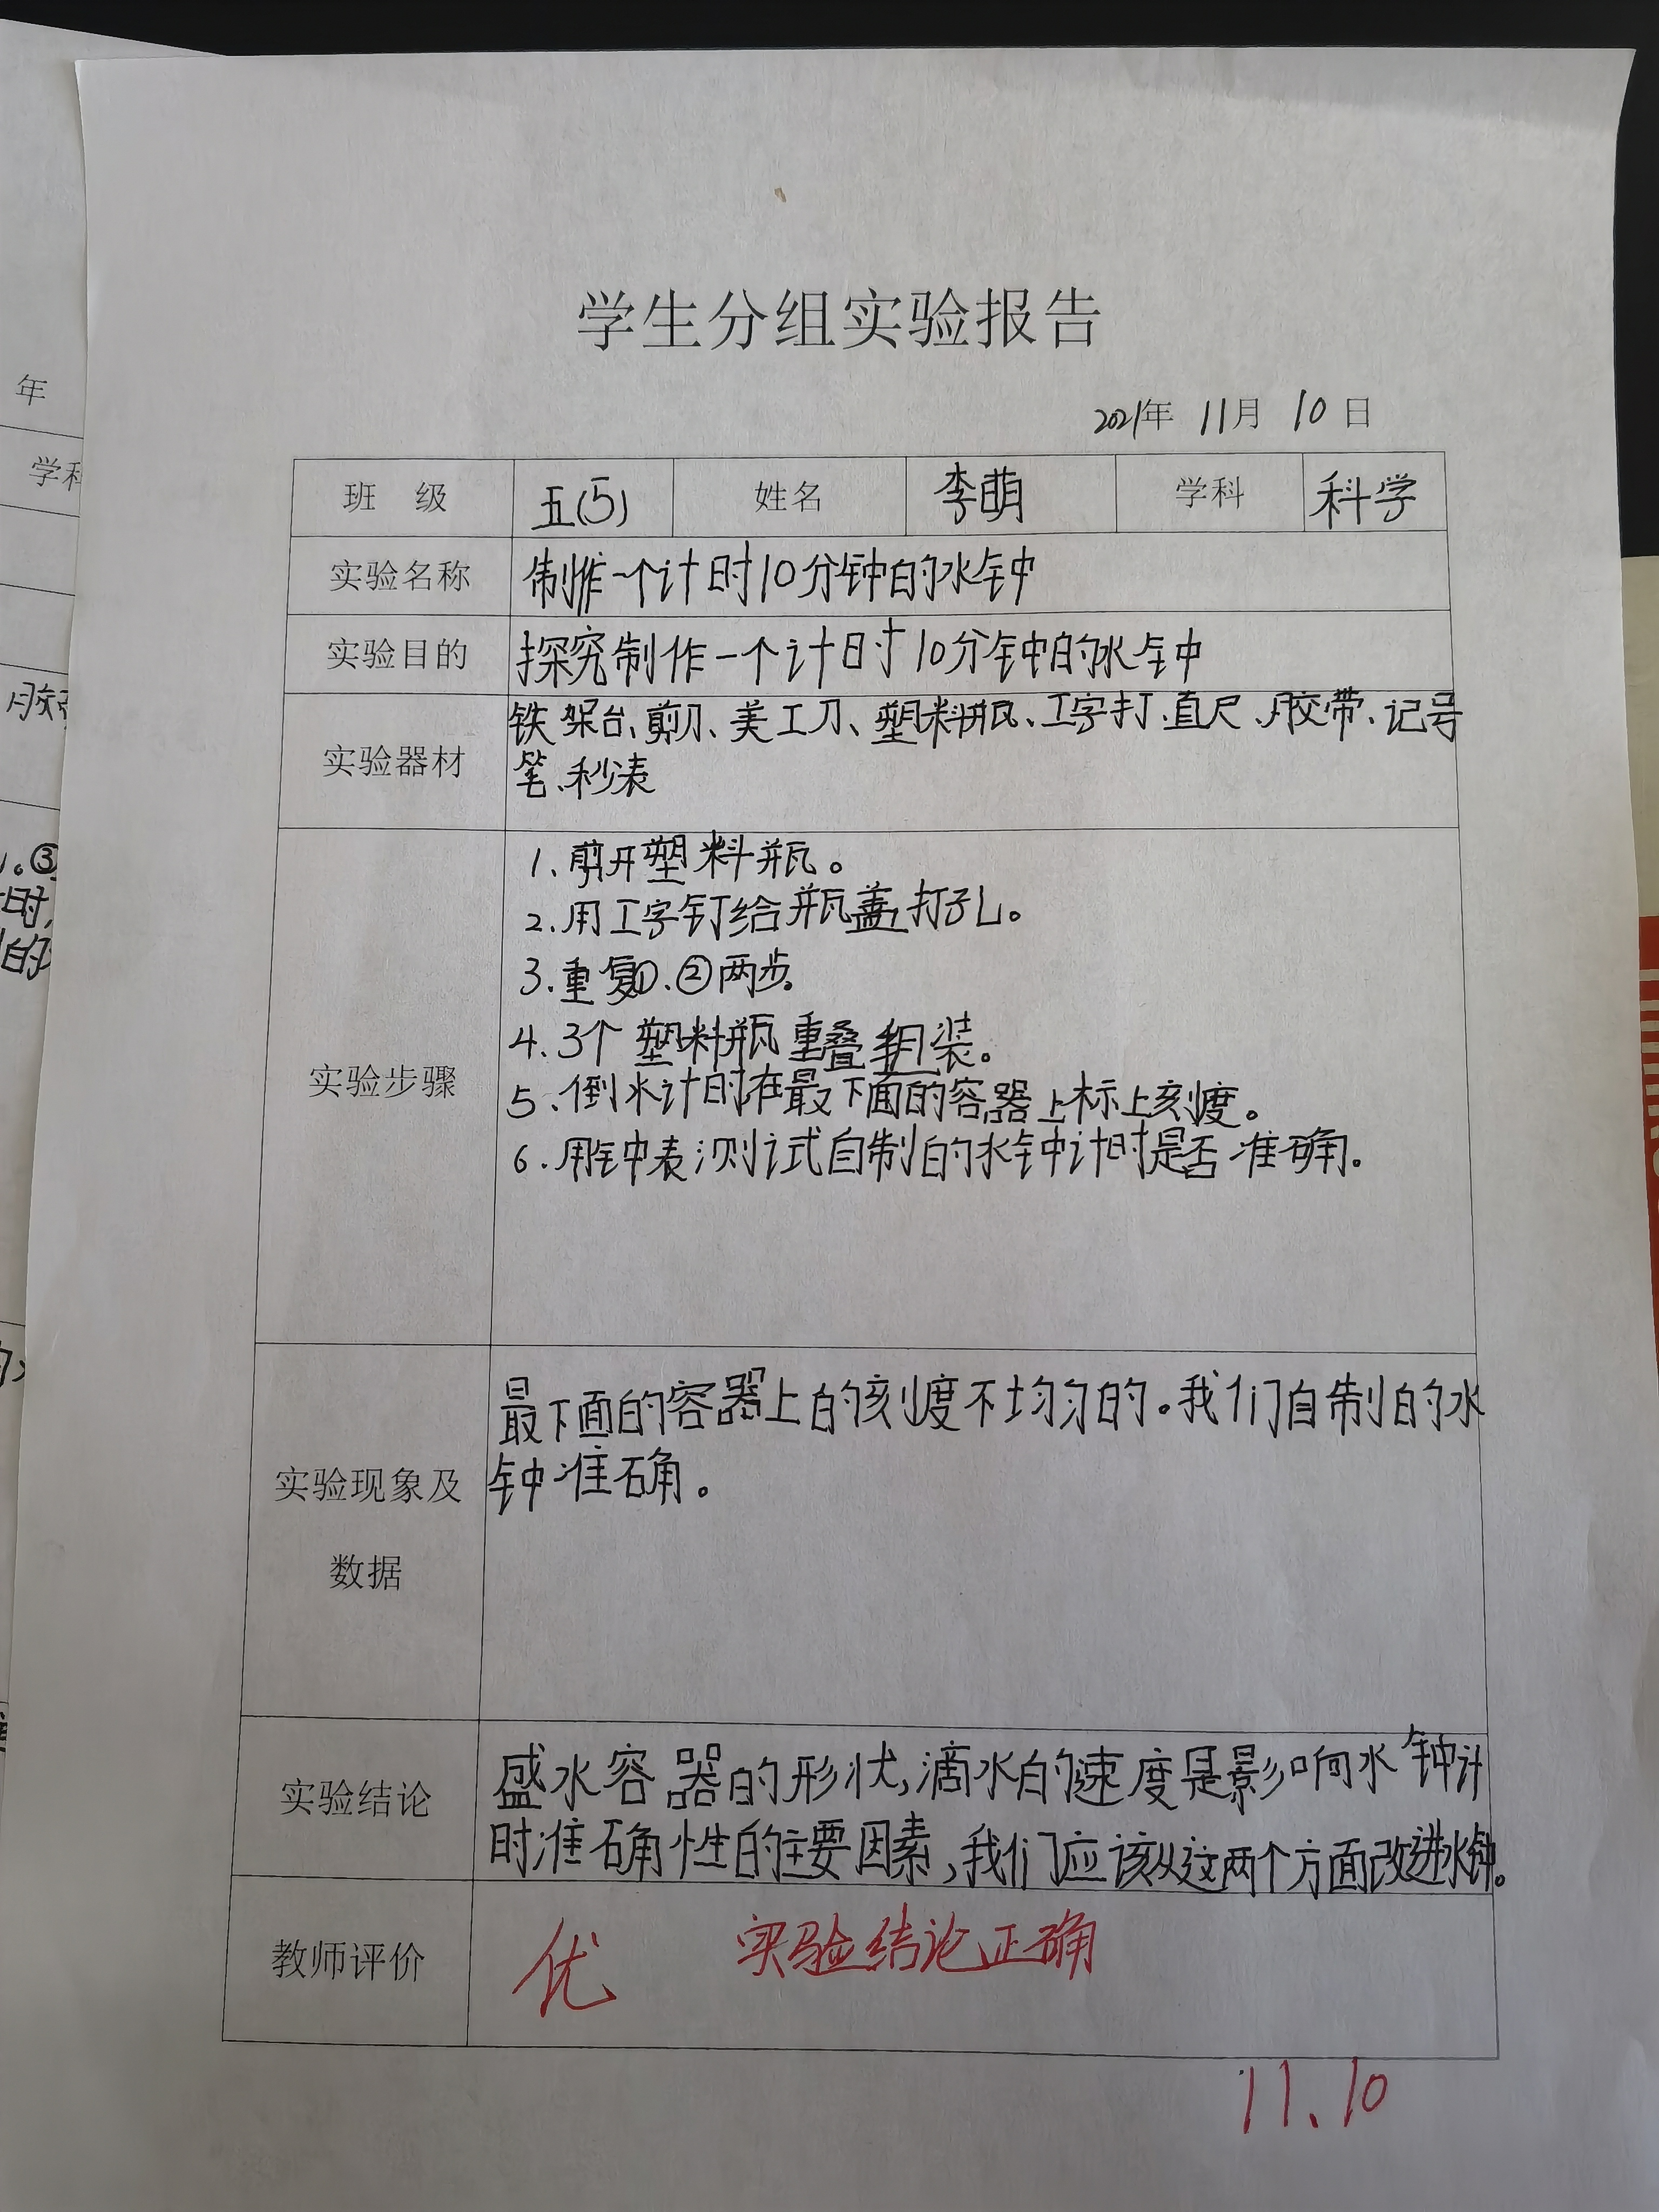 学生分组实验报告
2021年 11月 10日
班 级 五(5) 姓名 李萌 学科 科学
实验名称 制作一个计时10分钟的水钟
实验目的 探究制作一个计时10分钟的水钟
实验器材
铁架台、剪刀、美工刀、塑料瓶、工字打、直尺、胶带、记号
笔、秒表
实验步骤
1.剪开塑料瓶。
2.用工字钉给瓶盖打孔。
3.重复①、②两步。
4.3个塑料瓶重叠组装。
5.倒水计时在最下面的容器上标上刻度。
6.用钟表测试自制的水钟计时是否准确。
实验现象及
数据
最下面的容器上的刻度不均匀的。我们自制的水
钟准确。
实验结论
盛水容器的形状,滴水的速度是影响水钟计
时准确性的主要因素,我们应该从这两个方面改进水钟。
教师评价 优 实验结论正确
11.10
年
学科
胶
。③
时,
的